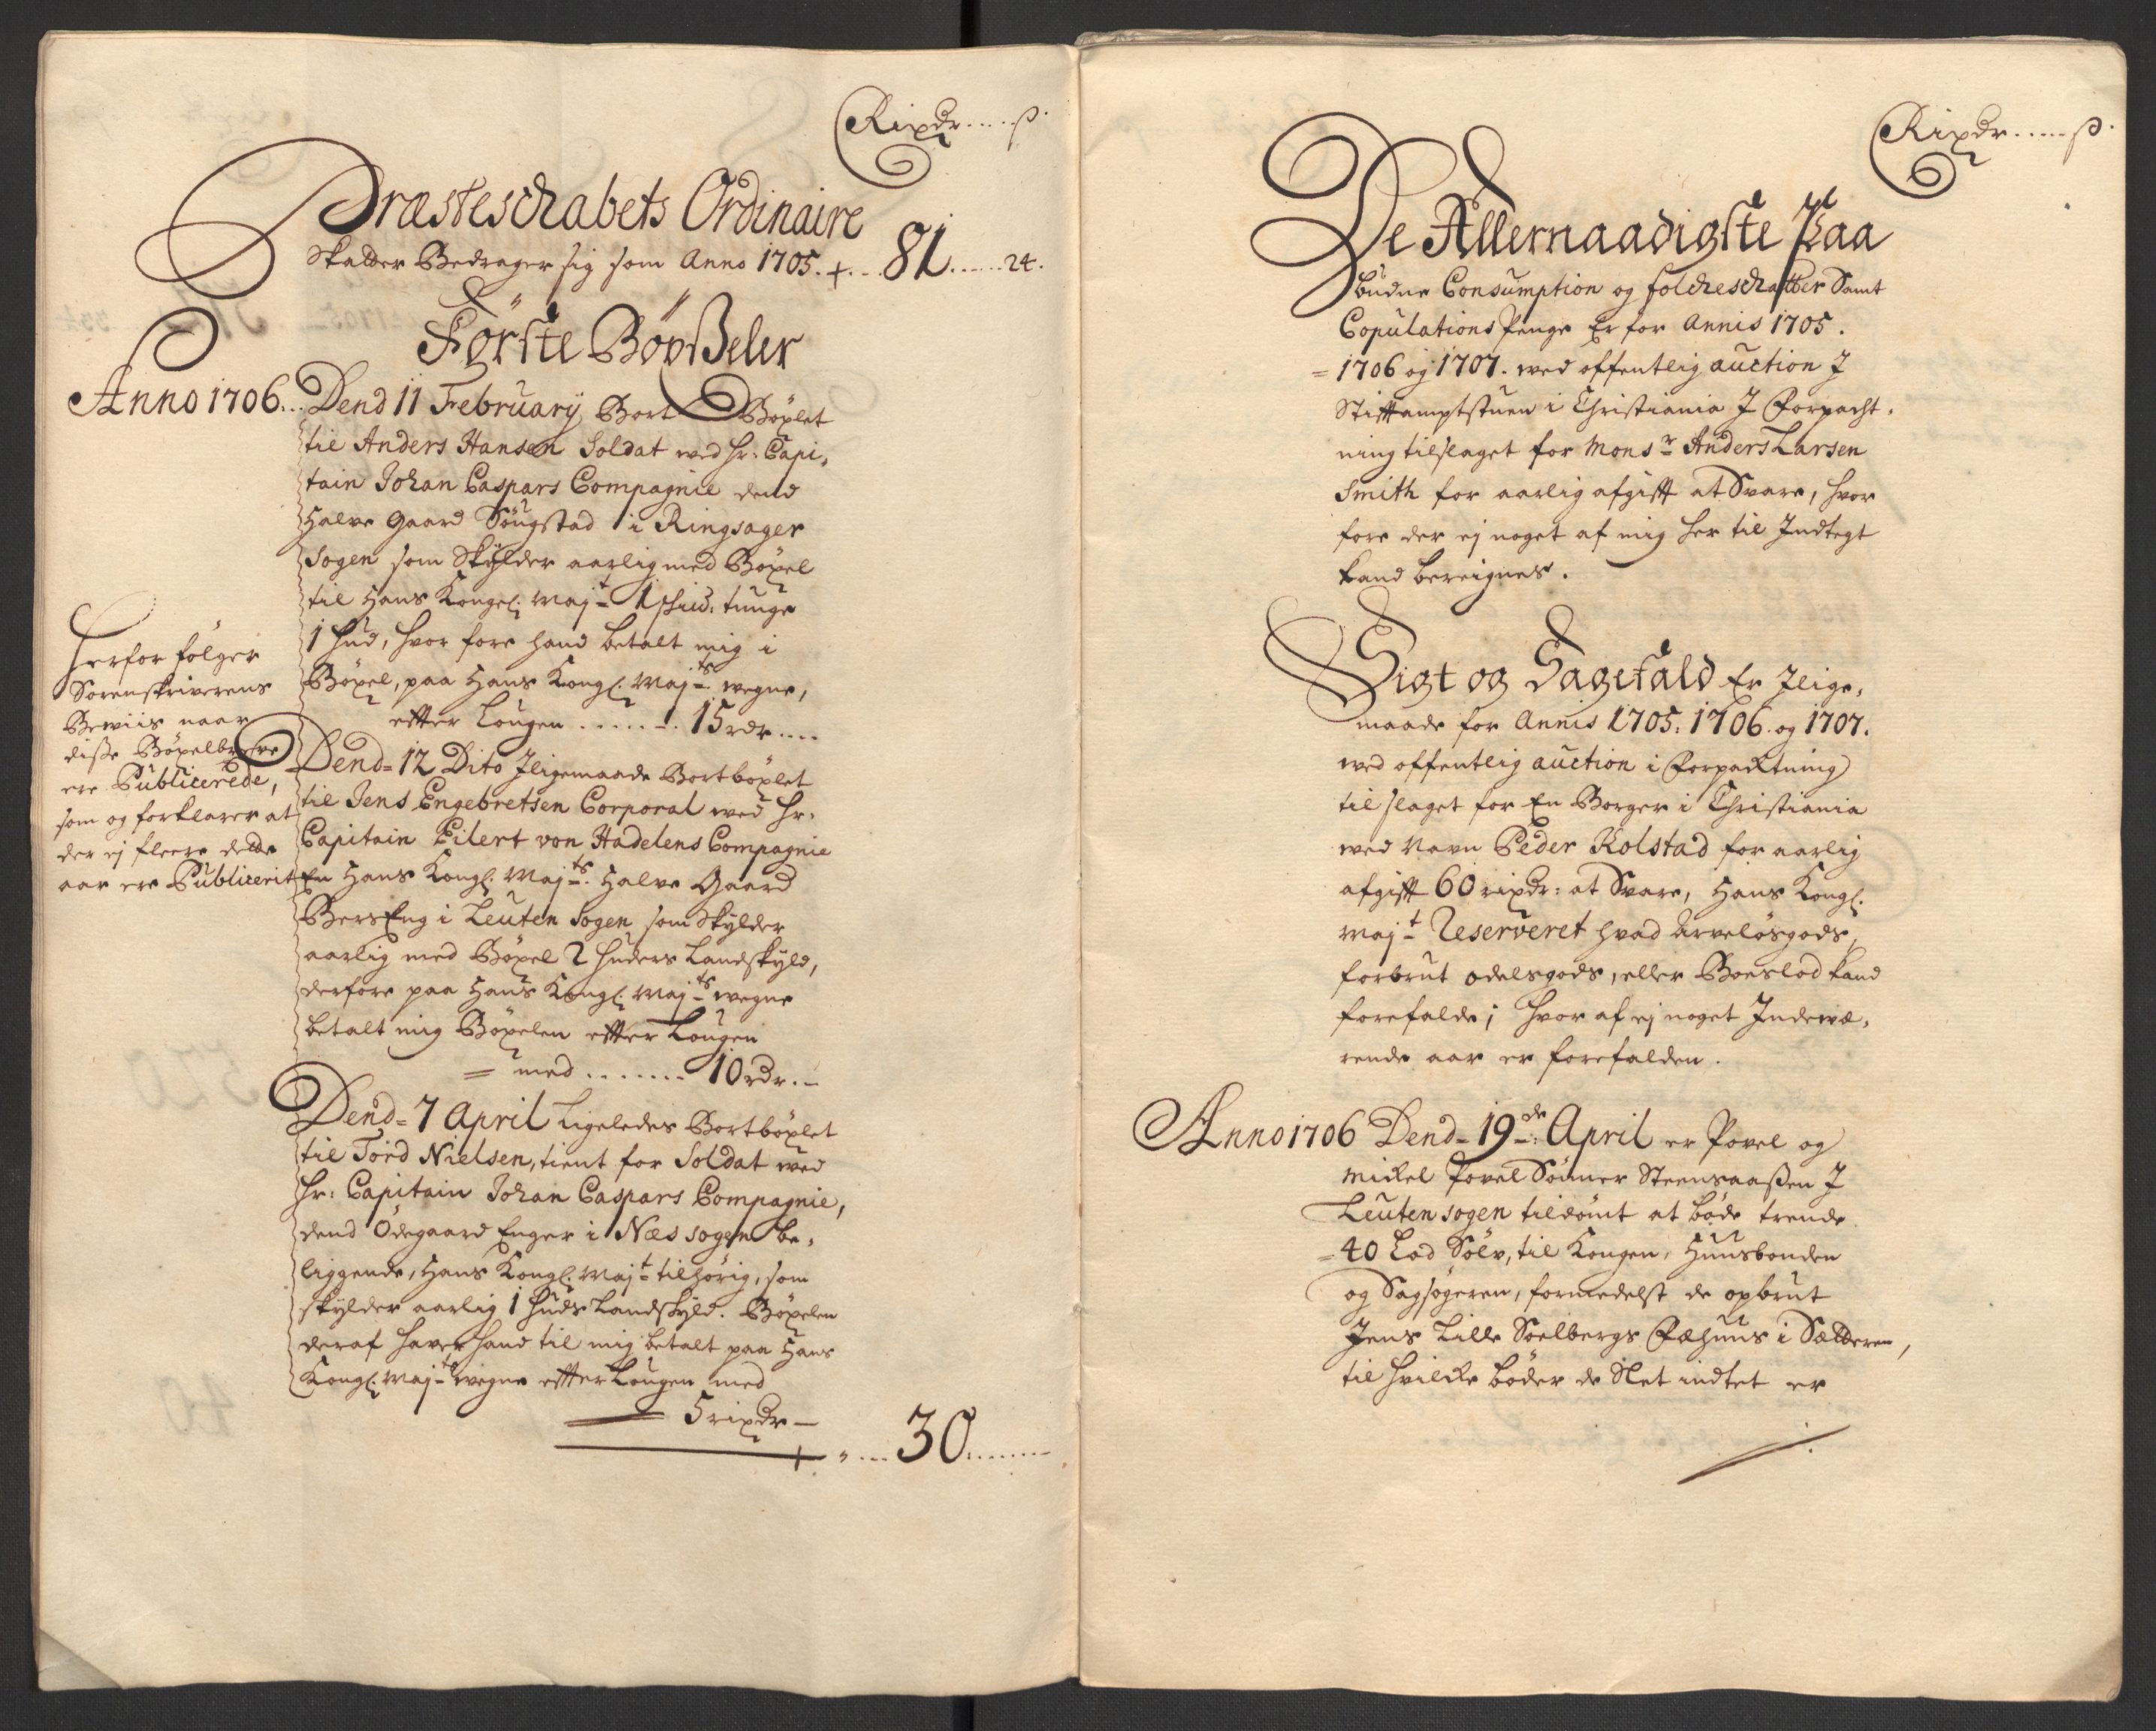 Rixdr.....ß.
Præsteschabets Ordinaire
Skatter Bedrager sig som Anno 1705. +... 81......24.
Förste Böxßeler
Anno 1706... Dend 11 February Bort Böxlet
til Anders Hansen Soldat wed Hr: Capi-
tain Johan Caspars Compagnie dend
Halve Gaard Söugstad i Ringsager
Sogen som Skylder aarlig med Böxel
til Hans Kongel: Maj.t 1 Schid: tunge
1 Hud, hvor fore hand betalt mig i
Böxel, paa Hans Kongl. Maj.ts wegne,
effter Lougen ........ 15 rdr....
Herfor fölger
Sorenskriverens
Bewiis naar
disse Böxelbrefve
ere Publicerede,
som og forklarer at
der ej fleere dette
aar ere Publicerit
Dend= 12 Dito Jligemaade Bortböxlet
til Jens Engebretsen Corporal wed Hr.
Capitain Eilert von Hadelens Compagnie
En Hans Kongl. Maj.ts Halve Gaard
BersEng i Leuten Sogen som Skylder
aarlig med Böxel 2 Huders Landskyld,
derfore paa Hans Kongl. Maj.ts wegne
betalt mig Böxelen effter Lougen
= med ....... 10 rdr.-
Dend= 7 April Ligeledes Bortböxlet
til Tord Nielsen, tient for Soldat wed
Hr: Capitain Johan Caspars Compagnie,
dend Ödegaard Enger i Næs sogen be-
liggende, Hans Kongl. Maj.t tilhörig, som
skylder aarlig 1 Huds Landskyld. Böxelen
deraf haver hand til mig betalt paa Hans
Kongl. Maj.ts wegne effter Lougen med
5 rixdr —
+ "....30........
Rixdr.....ß.
De Allernaadigste Paa
budne Consumption og folckeschatter Samt
Copulations Penge Er for Annis 1705.
= 1706 og 1707. wed offentlig auction J
Stifftamptstuen i Christiania J Forpacht-
ning tilslaget for Mons.r Anders Larsen
Smith for aarlig afgifft at Svare, hvor
fore der ej noget af mig her til Jndtegt
kand bereignes.
Sigt og Sagefald Er Jlige-
maade for Annis 1705. 1706. og 1707.
wed offentlig auction i Forpacktning
til slaget for En Borger i Christiania
wed Navn Peder Kolstad for aarlig
afgifft 60 rixdr: at Svare, Hans Kongl.
Maj.t Reserveret hvad Arvelösgods,
forbrut odelsgods, eller Boeslod kand
forefalde; hvor af ej noget Jndewæ-
rende aar er forefalden.
Anno 1706 Dend= 19de: April er Povel og
Mickel Povel Sönner Steensaaßen J
Leuten sogen tildömt at böde trende
= 40 Lod Sölv, til Kongen, Huusbonden
og Sagsögeren, formedelst de opbrut
Jens Lille Soelbergs Fæhuus i Sætteren,
til hvilcke böder de Slet indtet er